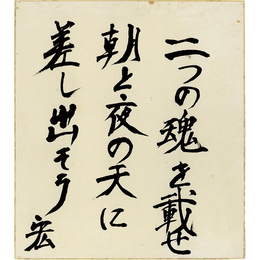 二つの魂を載せ
朝と夜の天に
差し出そう
宏